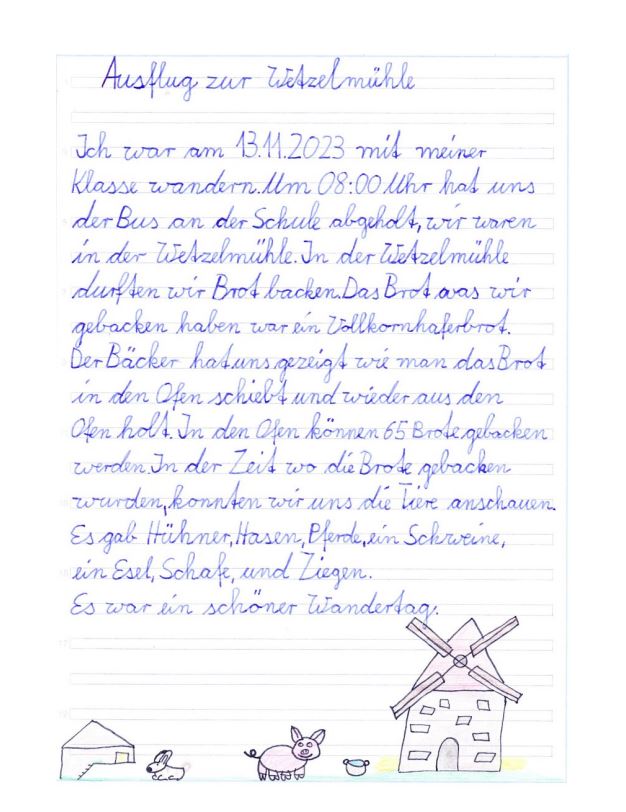 Ausflug zur Wetzelmühle
Ich war am 13.11.2023 mit meiner
Klasse wandern. Um 08:00 Uhr hat uns
der Bus an der Schule abgeholt, wir waren
in der Wetzelmühle. In der Wetzelmühle
durften wir Brot backen. Das Brot was wir
gebacken haben war ein Vollkornhaferbrot.
Der Bäcker hat uns gezeigt wie man das Brot
in den Ofen schiebt und wieder aus den
Ofen holt. In den Ofen können 65 Brote gebacken
werden. In der Zeit wo die Brote gebacken
wurden, konnten wir uns die Tiere anschauen.
Es gab Hühner, Hasen, Pferde, ein Schweine,
ein Esel, Schafe, und Ziegen.
Es war ein schöner Wandertag.